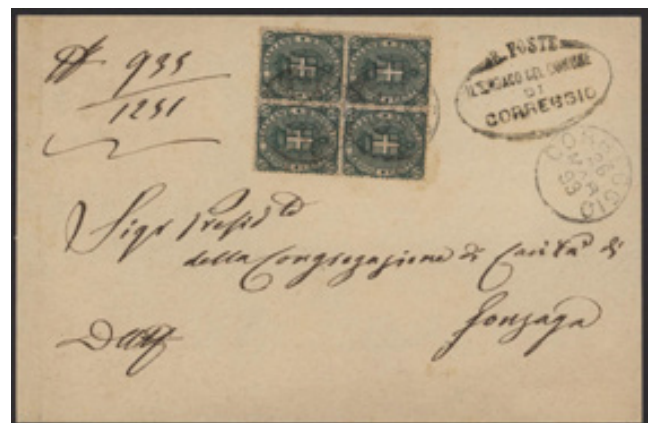 935
1251
R. POSTE
IL SINDACO DEL COMUNE
DI
CORREGGIO
CORREGGIO
26
MAR
93
Sigr Presid te
della Congregazione di Carità di
Gonzaga